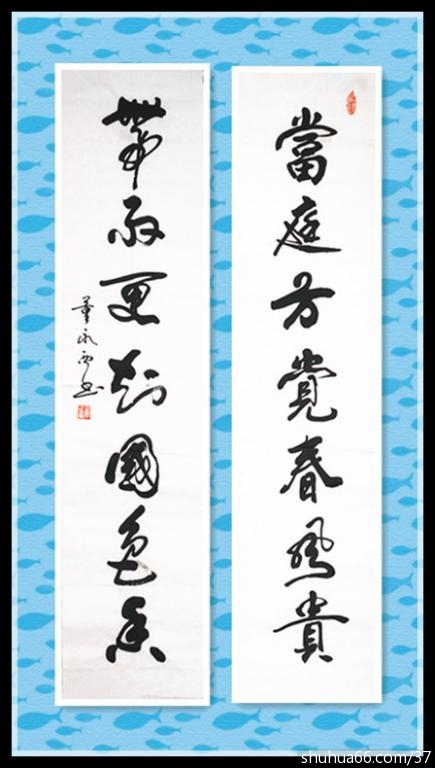 當庭方覺春風貴
帶雨更知國色香
董永書
shuhua66.com/37